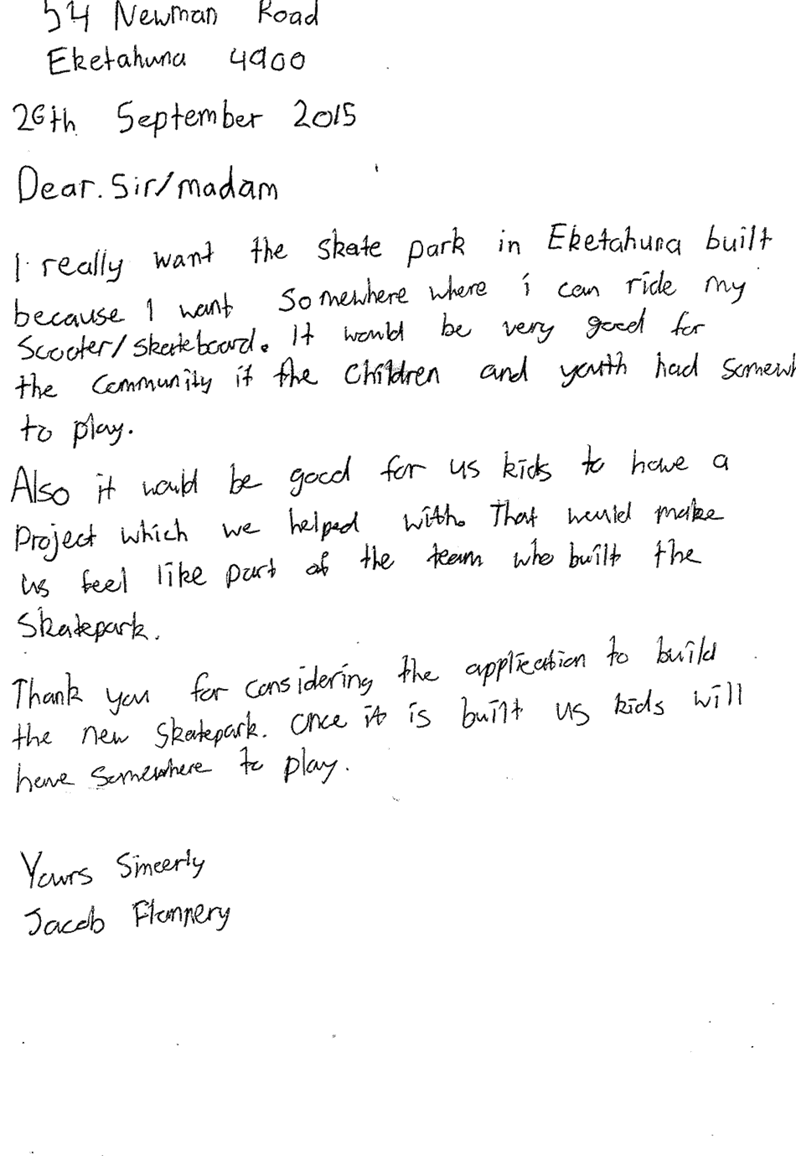 54 Newman Road
Eketahuna 4900
26th September 2015
Dear. Sir/madam
I really want the skate park in Eketahuna built
because I want Somewhere where i can ride my
Scooter/skateboard. It would be very good for
the Community if the Children and youth had somewh
to play.
Also it would be good for us kids to have a
Project which we helped with. That would make
us feel like part of the team who built the
Skatepark.
Thank you for considering the application to build
the new skatepark. Once it is built us kids will
have somewhere to play.
Yours Sincerly
Jacob Flannery